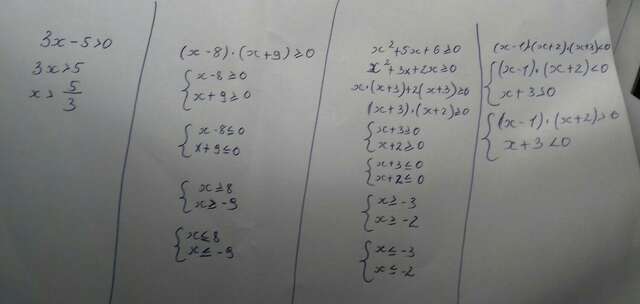 3x-5>0
3x>5
x>5/3
(x-8)·(x+9)≥0
{x-8≥0
x+9≥0
{x-8≤0
x+9≤0
{x≥8
x≥-9
{x≤8
x≤-9
x²+5x+6≥0
x²+3x+2x≥0
x·(x+3)+2(x+3)≥0
(x+3)·(x+2)≥0
{x+3≥0
x+2≥0
{x+3≤0
x+2≤0
{x≥-3
x≥-2
{x≤-3
x≤-2
(x-1)·(x+2)·(x+3)<0
{(x-1)·(x+2)<0
x+3>0
{(x-1)·(x+2)>0
x+3<0